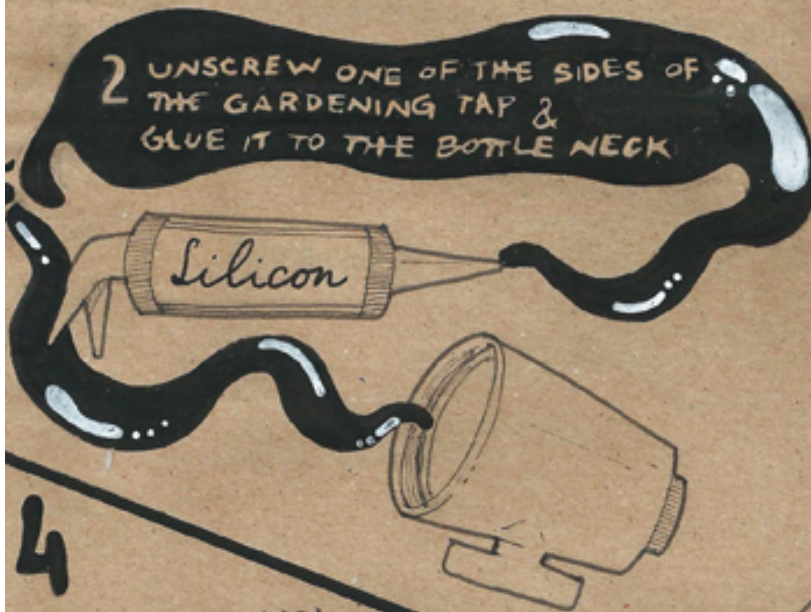 2 UNSCREW ONE OF THE SIDES OF
THE GARDENING TAP &
GLUE IT TO THE BOTTLE NECK
Silicon
4